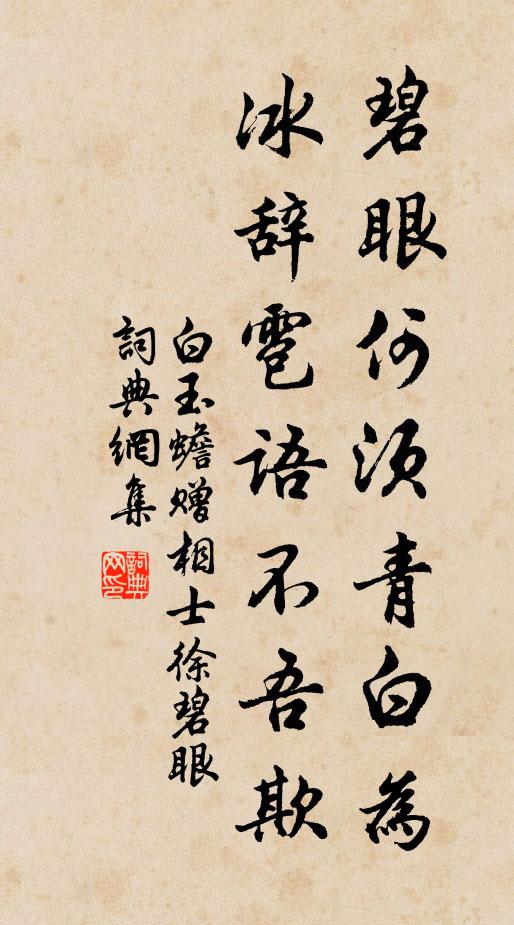 碧眼何须青白為
冰辞雹語不吾欺
白玉蟾赠相士徐碧眼
詞典網集
詞典网印